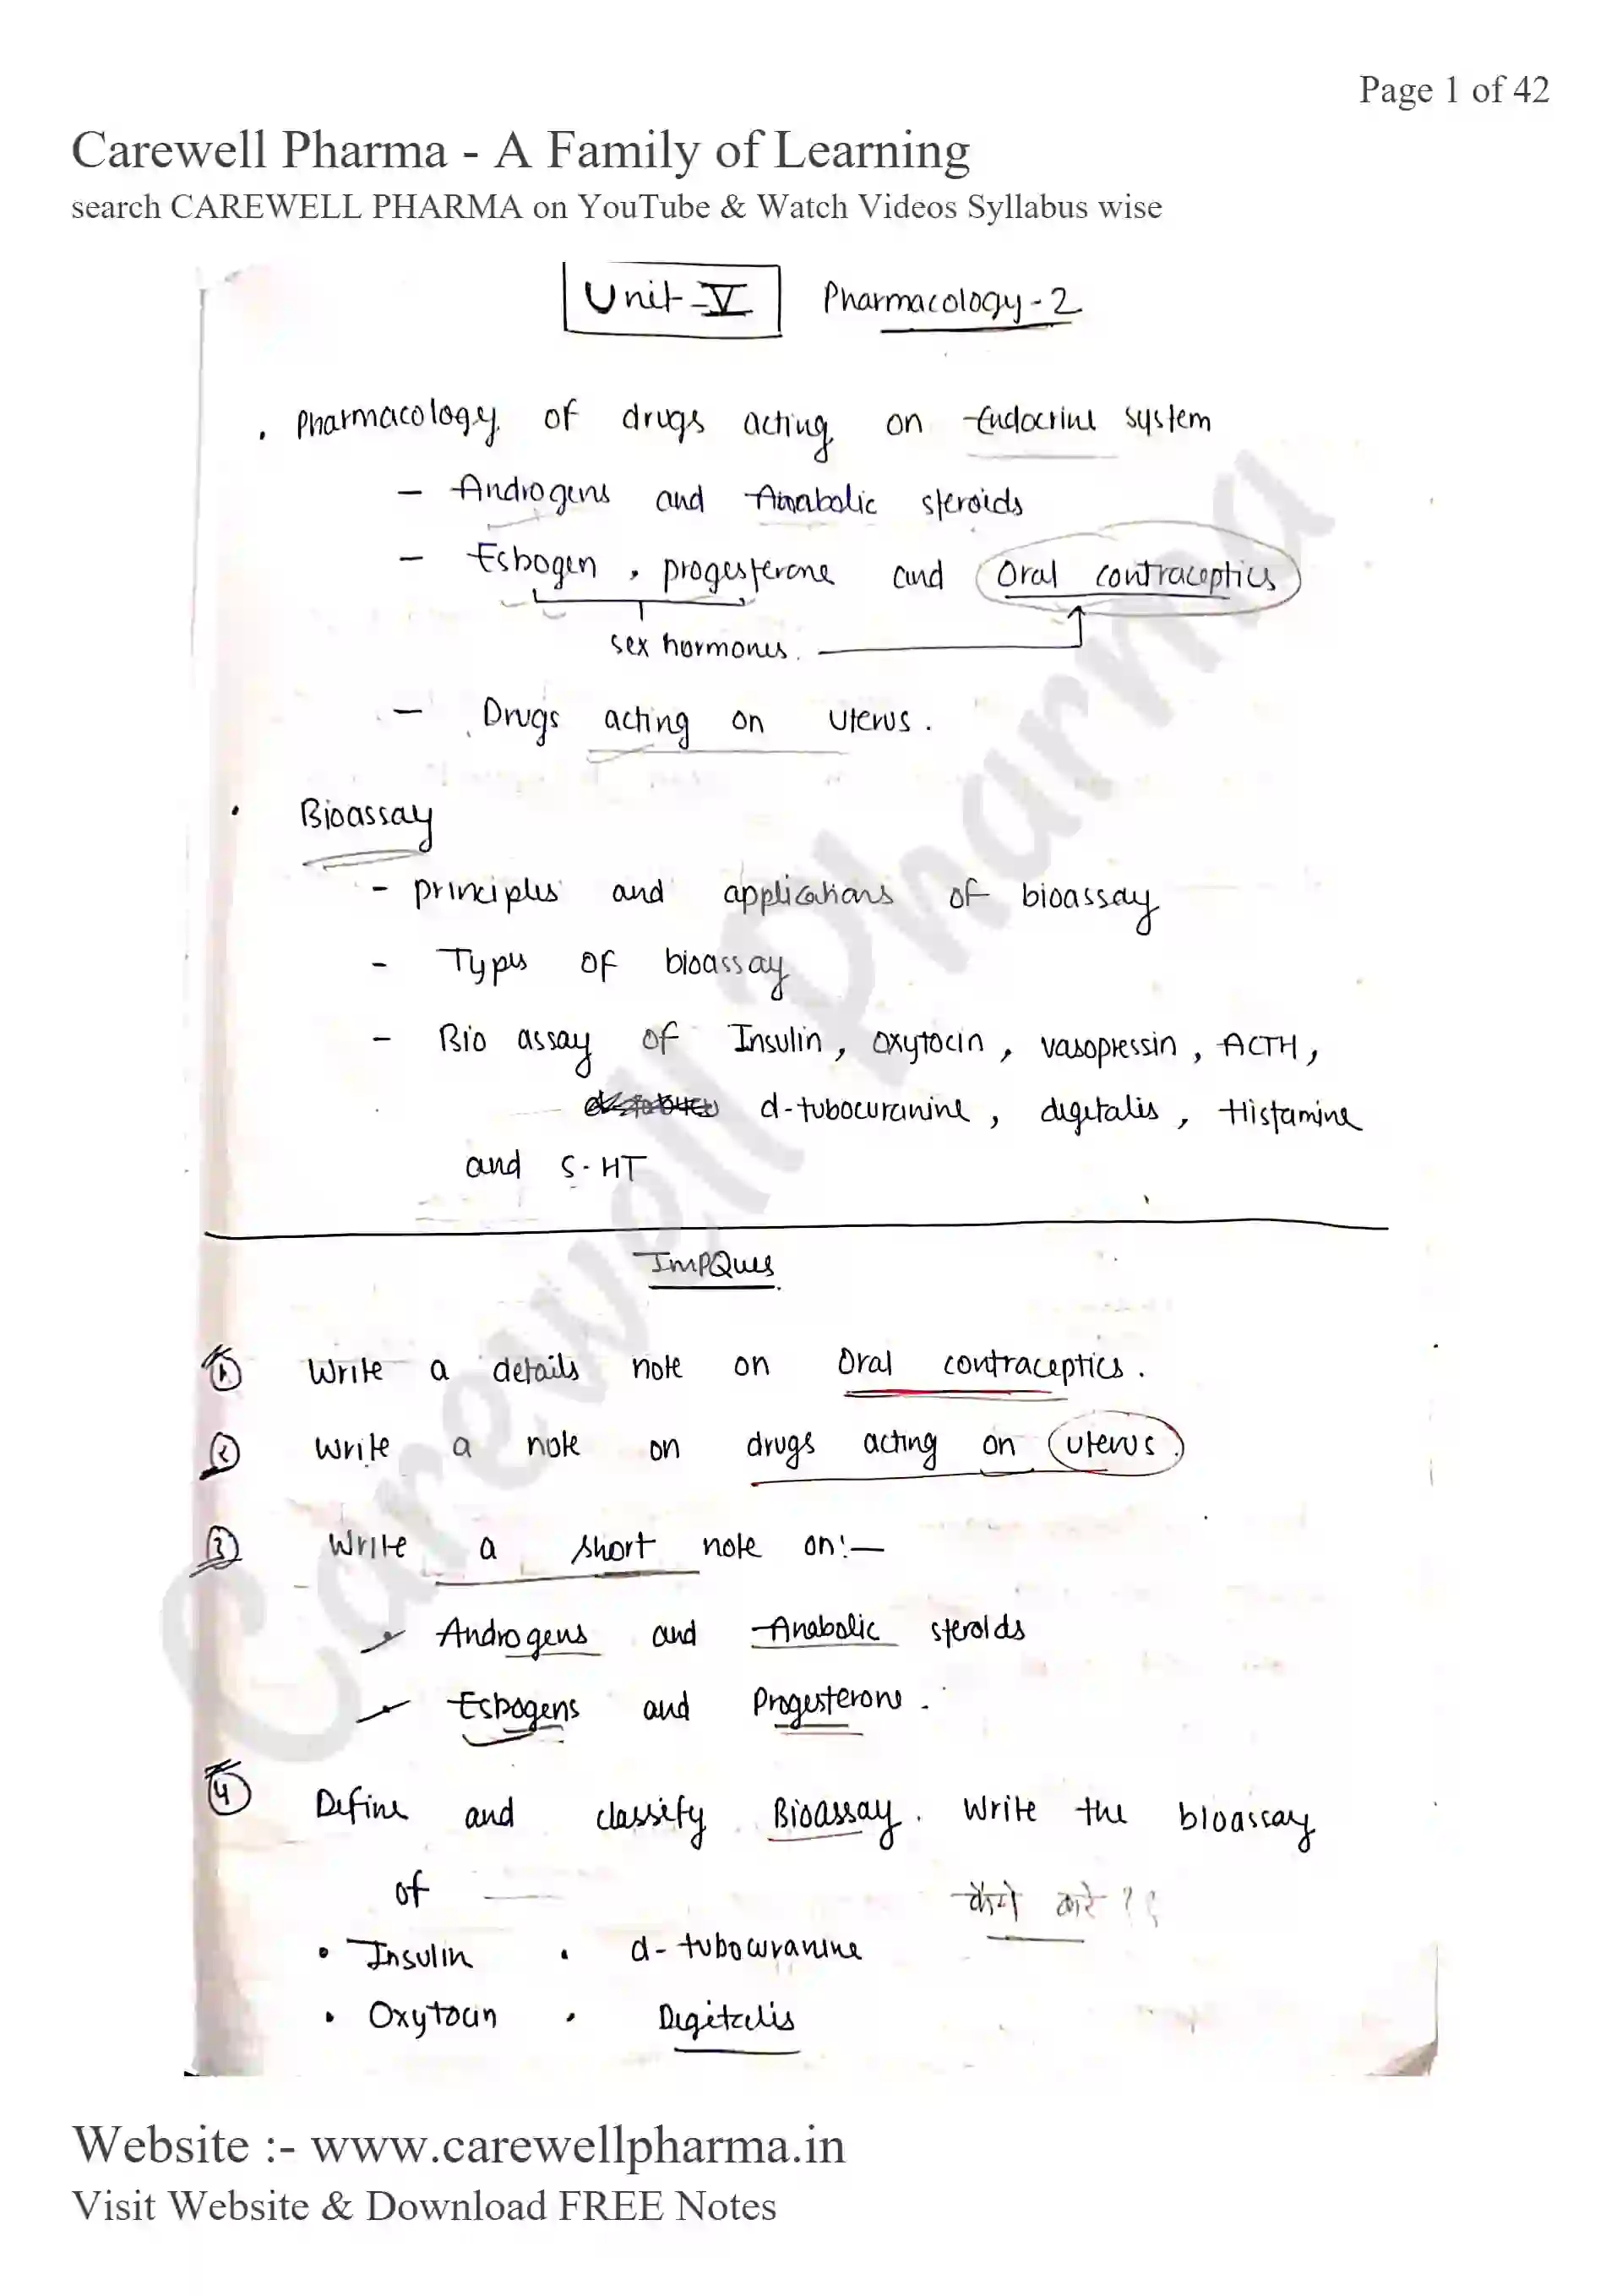 Page 1 of 42
Carewell Pharma - A Family of Learning
search CAREWELL PHARMA on YouTube & Watch Videos Syllabus wise
Unit-V Pharmacology-2
. Pharmacology of drugs acting on Endocrine system
- Androgens and Anabolic steroids
- Estrogen , progesterone and Oral contraceptics
sex hormones.
- Drugs acting on uterus.
. Bioassay
- principles and applications of bioassay
- Types of bioassay
- Bio assay of Insulin, oxytocin, vasopressin, ACTH,
d-tubocuranine, digitalis, Histamine
and 5-HT
Imp Ques
1 Write a details note on Oral contraceptics.
2 Write a note on drugs acting on uterus.
3 Write a short note on:-
Androgens and Anabolic steroids
Estrogens and Progesterone.
4 Define and classify Bioassay. Write the bioassay
of कैसे करे ??
• Insulin • d-tubocuranine
• Oxytocin • Digitalis
Carewell Pharma
Website :- www.carewellpharma.in
Visit Website & Download FREE Notes